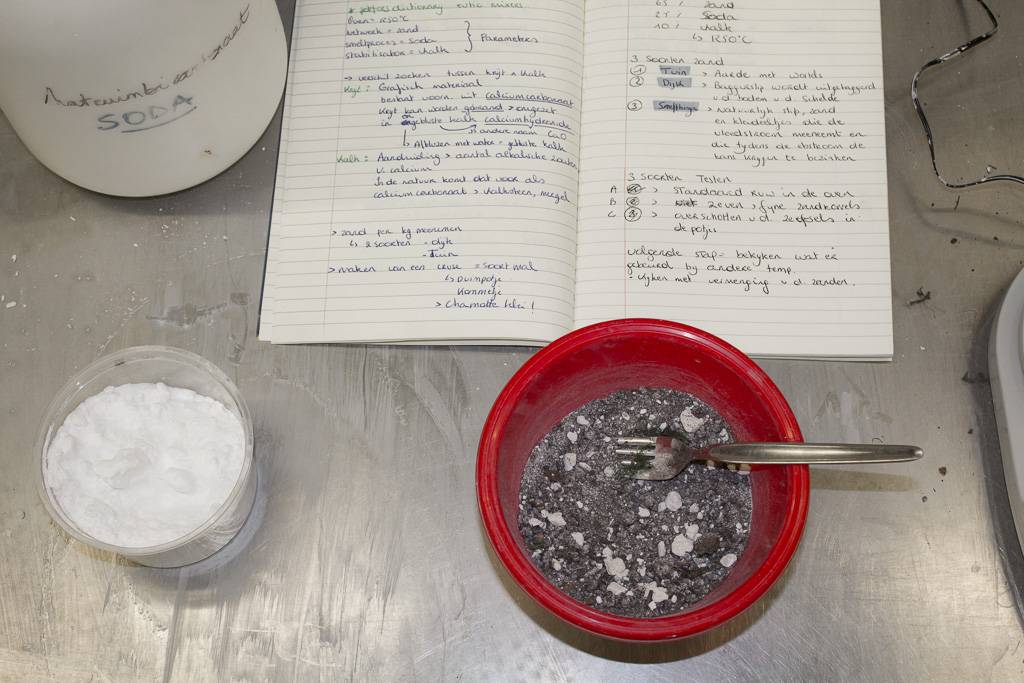 Natriumbicarbonaat
SODA
dictionary
Oven = 1250°C
netwerk = zand
smeltproces = soda
stabilisation = chalk
Parameters
→ verschil zoeken tussen krijt & kalk
Kryt: Grafisch materiaal
bestaat voorn. uit calciumcarbonaat
kryt kan worden gebrand > omgezet
in ongebluste kalk calciumhydroxide
↳ andere naam CaO
↳ Afblussen met water = gebluste kalk
Kalk: Aanduiding > aantal alkalische zouten
v. calcium
In de natuur komt dat voor als
calciumcarbonaat > kalksteen, mergel
> zand per kg meenemen
↳ 2 soorten - dyk
- Tuin
> maken van een cruse = soort mal
↳ Duimpotje
Kommetje
> Chamotte klei!
65 % zand
25 % Soda
10 % kalk
↳ 1250°C
3 Soorten zand
1 Tuin > Aarde met worlds
2 Dijk > Baggerslip wordt uitgebaggerd
v.d. bodem v.d. Schelde
3 > Natuurlijk slip, zand
en kleideeltjes die de
vloedstroom meeneemt en
die tydens de ebstroom de
kans krygen te bezinken
3 Soorten Testen
A > standaard ruw in de oven
B > zeven > fyne zandkorrels
C > overschotten v.d. zeefsels in
de potjes
volgende stap = bekyken wat er
gebeurd by andere temp.
- Kyken met vermenging v.d. zanden.